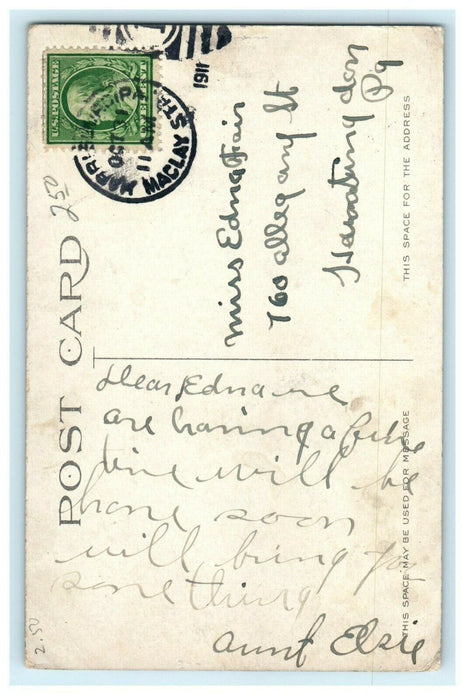 POST CARD
THIS SPACE MAY BE USED FOR MESSAGE
THIS SPACE FOR THE ADDRESS
U.S. POSTAGE
HARRISB
MACLAY STA
11 AM
1911
Miss Edna Fair
760 allegany St
Huntingdon
Pa
Dear Edna we
are having a fine
time will be
home soon
will bring you
something
aunt Elsie
250
2.50